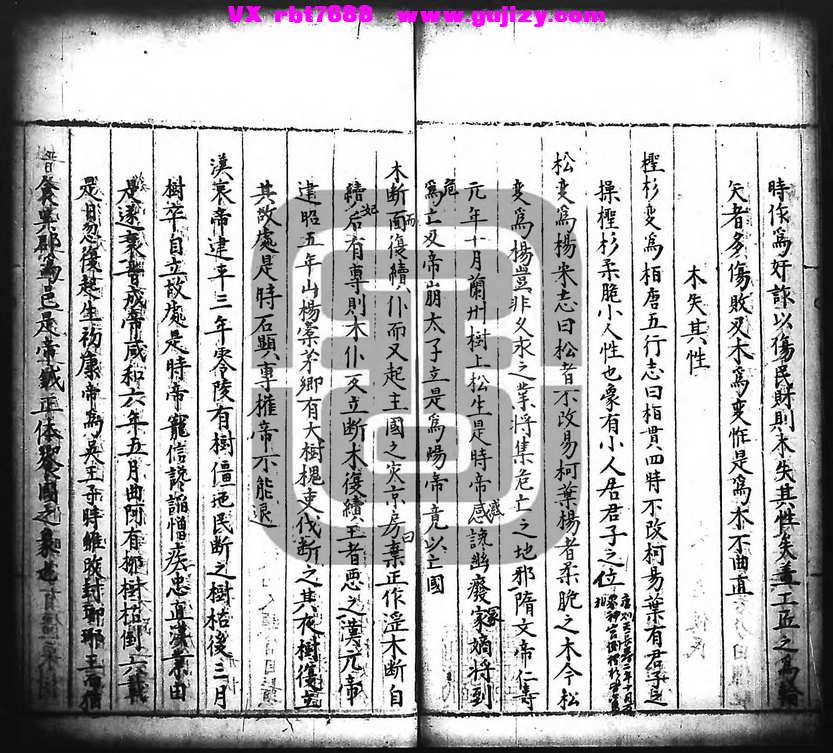 VX rbt7688 www.gujizy.com
時作爲好詠以傷民財則木失其性矣蓋工匠之爲輪
矢者多傷敗又木爲變怪是爲木不曲直
木失其性
檉杉變爲栢唐五行志曰栢貫四時不改柯易葉有君子之
操檉杉柔脆小人性也象有小人居君子之位
松變爲楊宋志曰松者不改易柯葉楊者柔脆之木今松
變爲楊豈非久求之業將集危亡之地邪隋文帝仁壽
元年十月蘭州樹上松生是時帝惑讒幽廢冢嫡將到
危亡及帝崩太子立是爲煬帝竟以亡國
木斷而復續仆而又起主國之災京房葉正作淫木斷自
續后有專則木仆反立斷木復續王者惡之漢元帝
建昭五年山楊槀茅鄉有大樹槐吏伐斷之其夜樹復立
其故處是時石顯專權帝不能退
漢哀帝建平三年零陵有樹僵地民斷之樹枯後三月
樹卒自立故處是時帝寵信讒諂憎疾忠直漢業由
是遂衰晉成帝咸和六年五月曲阿有柳樹枯倒六載
是月忽復起生初康帝爲吳王于時雖改封瑯琊王而猶
食吳郡爲邑是帝